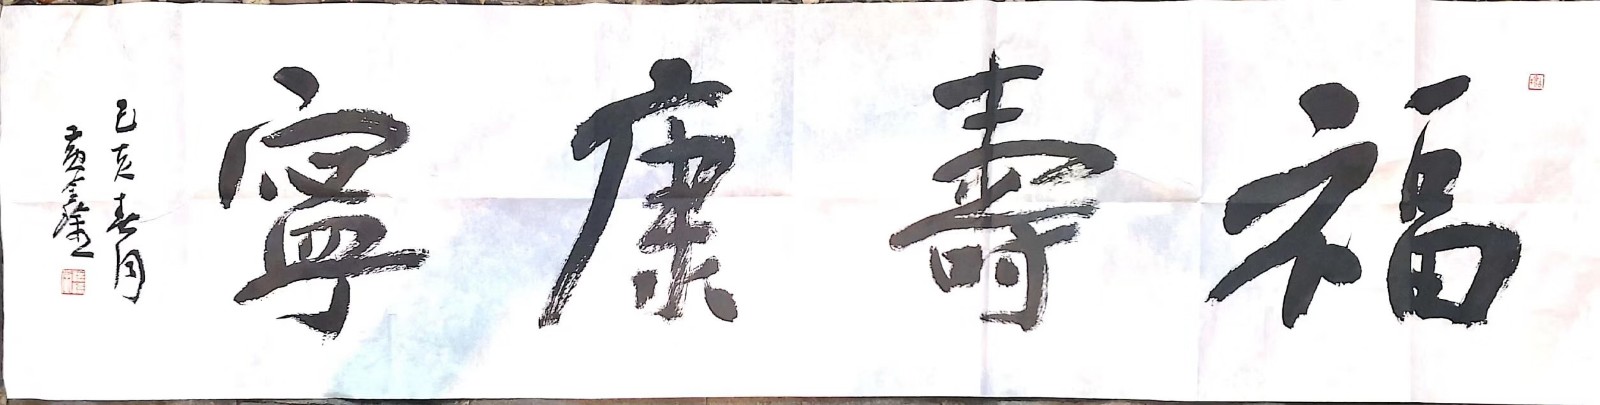 福壽康寧
己亥春月